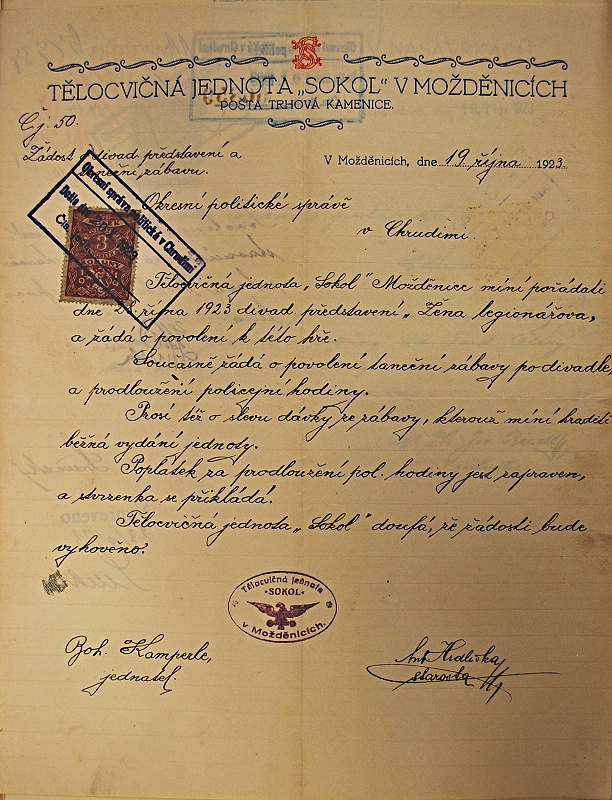 TĚLOCVIČNÁ JEDNOTA „SOKOL" V MOŽDĚNICÍCH
POŠTA TRHOVÁ KAMENICE.
Čj. 50.
Žádost o divad. představení a
taneční zábavu.
V Možděnicích, dne 19 října 1923.
Okresní správa politická v Chrudimi
Došlo
Okresní politické správě
v Chrudimi.
3
Tělocvičná jednota „Sokol" Možděnice míní pořádati
dne října 1923 divad. představení „Žena legionářova,
a žádá o povolení k této hře.
Současně žádá o povolení taneční zábavy po divadle,
a prodloužení policejní hodiny.
Prosí též o slevu dávky ze zábavy, kterouž míní hraditi
běžná vydání jednoty.
Poplatek za prodloužení pol. hodiny jest zapraven,
a stvrzenka se přikládá.
Tělocvičná jednota „Sokol" doufá, že žádosti bude
vyhověno.
Tělocvičná jednota
"SOKOL"
v Možděnicích.
Boh. Kamperle,
jednatel.
Ant. Hrdlička
starosta